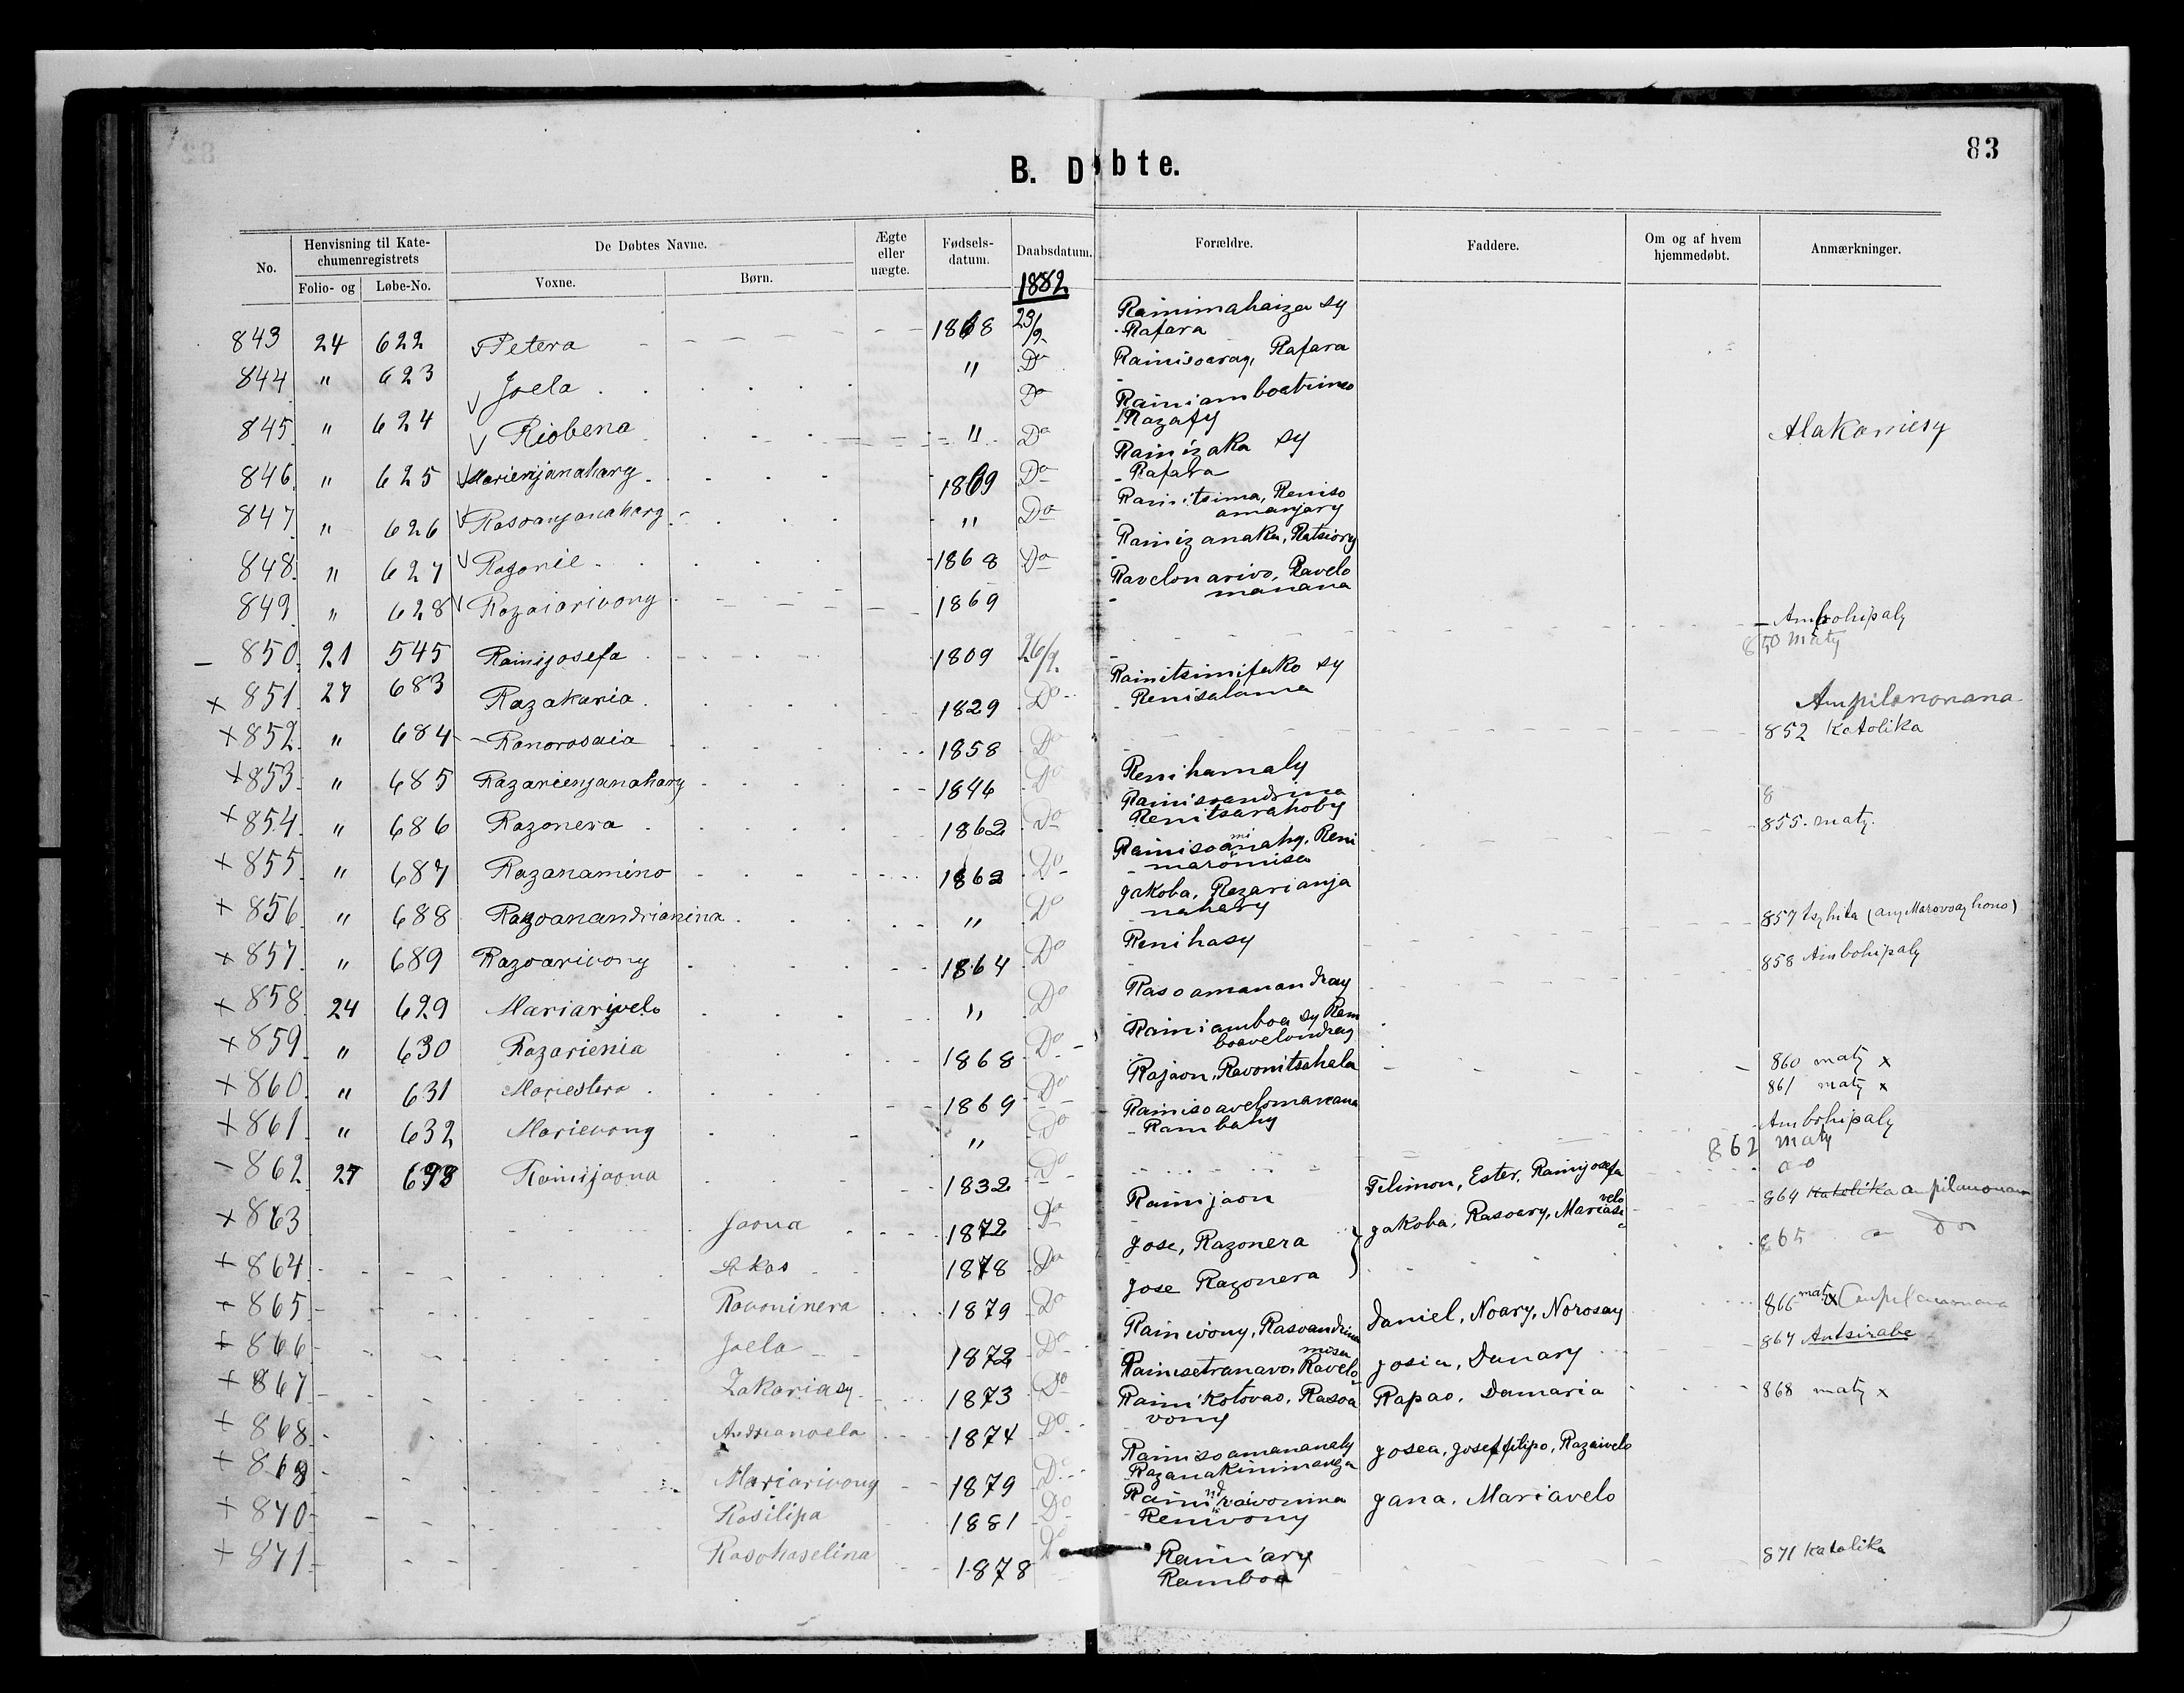 83
B. Døbte.
No. Henvisning til Kate-
chumenregistrets
Folio- og Løbe-No.
De Døbtes Navne.
Voxne. Børn.
Ægte
eller
uægte.
Fødsels-
datum.
Daabsdatum.
1882
Forældre.
Faddere.
Om og af hvem
hjemmedøbt.
Anmærkninger.
843 24 622 Petera 1868 29/9 Rainimahaiza sy
Rafara
844 " 623 Joela " Do Rainisoaray, Rafara
845 " 624 Riobena " Do Rainiamboatrimo
Razafy Alakamisy
846 " 625 Marienjanahary 1869 Do Rainizaka sy
Rafara
847 " 626 Rasoanjanahary " Do Rainitsima, Reniso
amanjary
848 " 627 Razonie 1868 Do Rainizanaka, Ratsiory
849 " 628 Razaiarivony 1869 Ravelonarivo, Ravelo
manana
Ambohipaly
850 21 545 Rainijosefa 1809 26/9 850 maty
851 27 683 Razakaria 1829 Do Rainitsimifako sy
Renisalama Ampilanonana
852 " 684 Ranorosaia 1858 Do 852 Katolika
853 " 685 Razarienjanahary 1846 Do Renihamaly
854 " 686 Razonera 1862 Do Rainisoandrina
Renitsarahoby 8
855 " 687 Razanamino 1862 Do Rainisoamianahy, Reni
maromisa 855. maty.
856 " 688 Razoanandrianina " Do Jakoba, Razarianja
nahary
857 " 689 Razoarivony 1864 Do Renihasy 857 tsy hita (any Marovoay hono)
858 24 629 Mariarivelo " Do Rasoamanandray 858 Ambohipaly
859 " 630 Razarienia 1868 Do Rainiamboa sy Reni
boavelondray
860 " 631 Mariestera 1869 Do Rajaon, Ravonitsahala 860 maty x
861 " 632 Marievony " Do Rainisoavelomanana
Rambahy 861 maty x
Ambohipaly
862 27 693 Rainijaona 1832 Do 862 maty
do
863 Jaona 1872 Do Rainijaon Filimon, Ester, Rainijosefa
864 Lkas 1878 Do Jose, Razonera Jakoba, Rasoary, Mariase
velo 864 Katolika Ampilanonana
865 Ravoninera 1879 Do Jose Razonera 865 do
866 Joela 1872 Do Rainivony, Rasoandrina Daniel, Noary, Norosay 866 maty x Ampilanonana
867 Zakariasy 1873 Do Rainisetranavo, Ravelo
misa Josia, Danary 867 Antsirabe
868 Andrianoela 1874 Do Rainikotovao, Rasoa
vony Rapao, Damaria 868 maty x
869 Mariarivony 1879 Do Rainisoamananaly
Razanakinimanga Josea, Josef filipo, Razaivelo
870 Rasilipa 1881 Do Rainindraivonina
Renivony Jana, Mariavelo
871 Rasohaselina 1878 Do Rainiary
Ramboa 871 Katolika